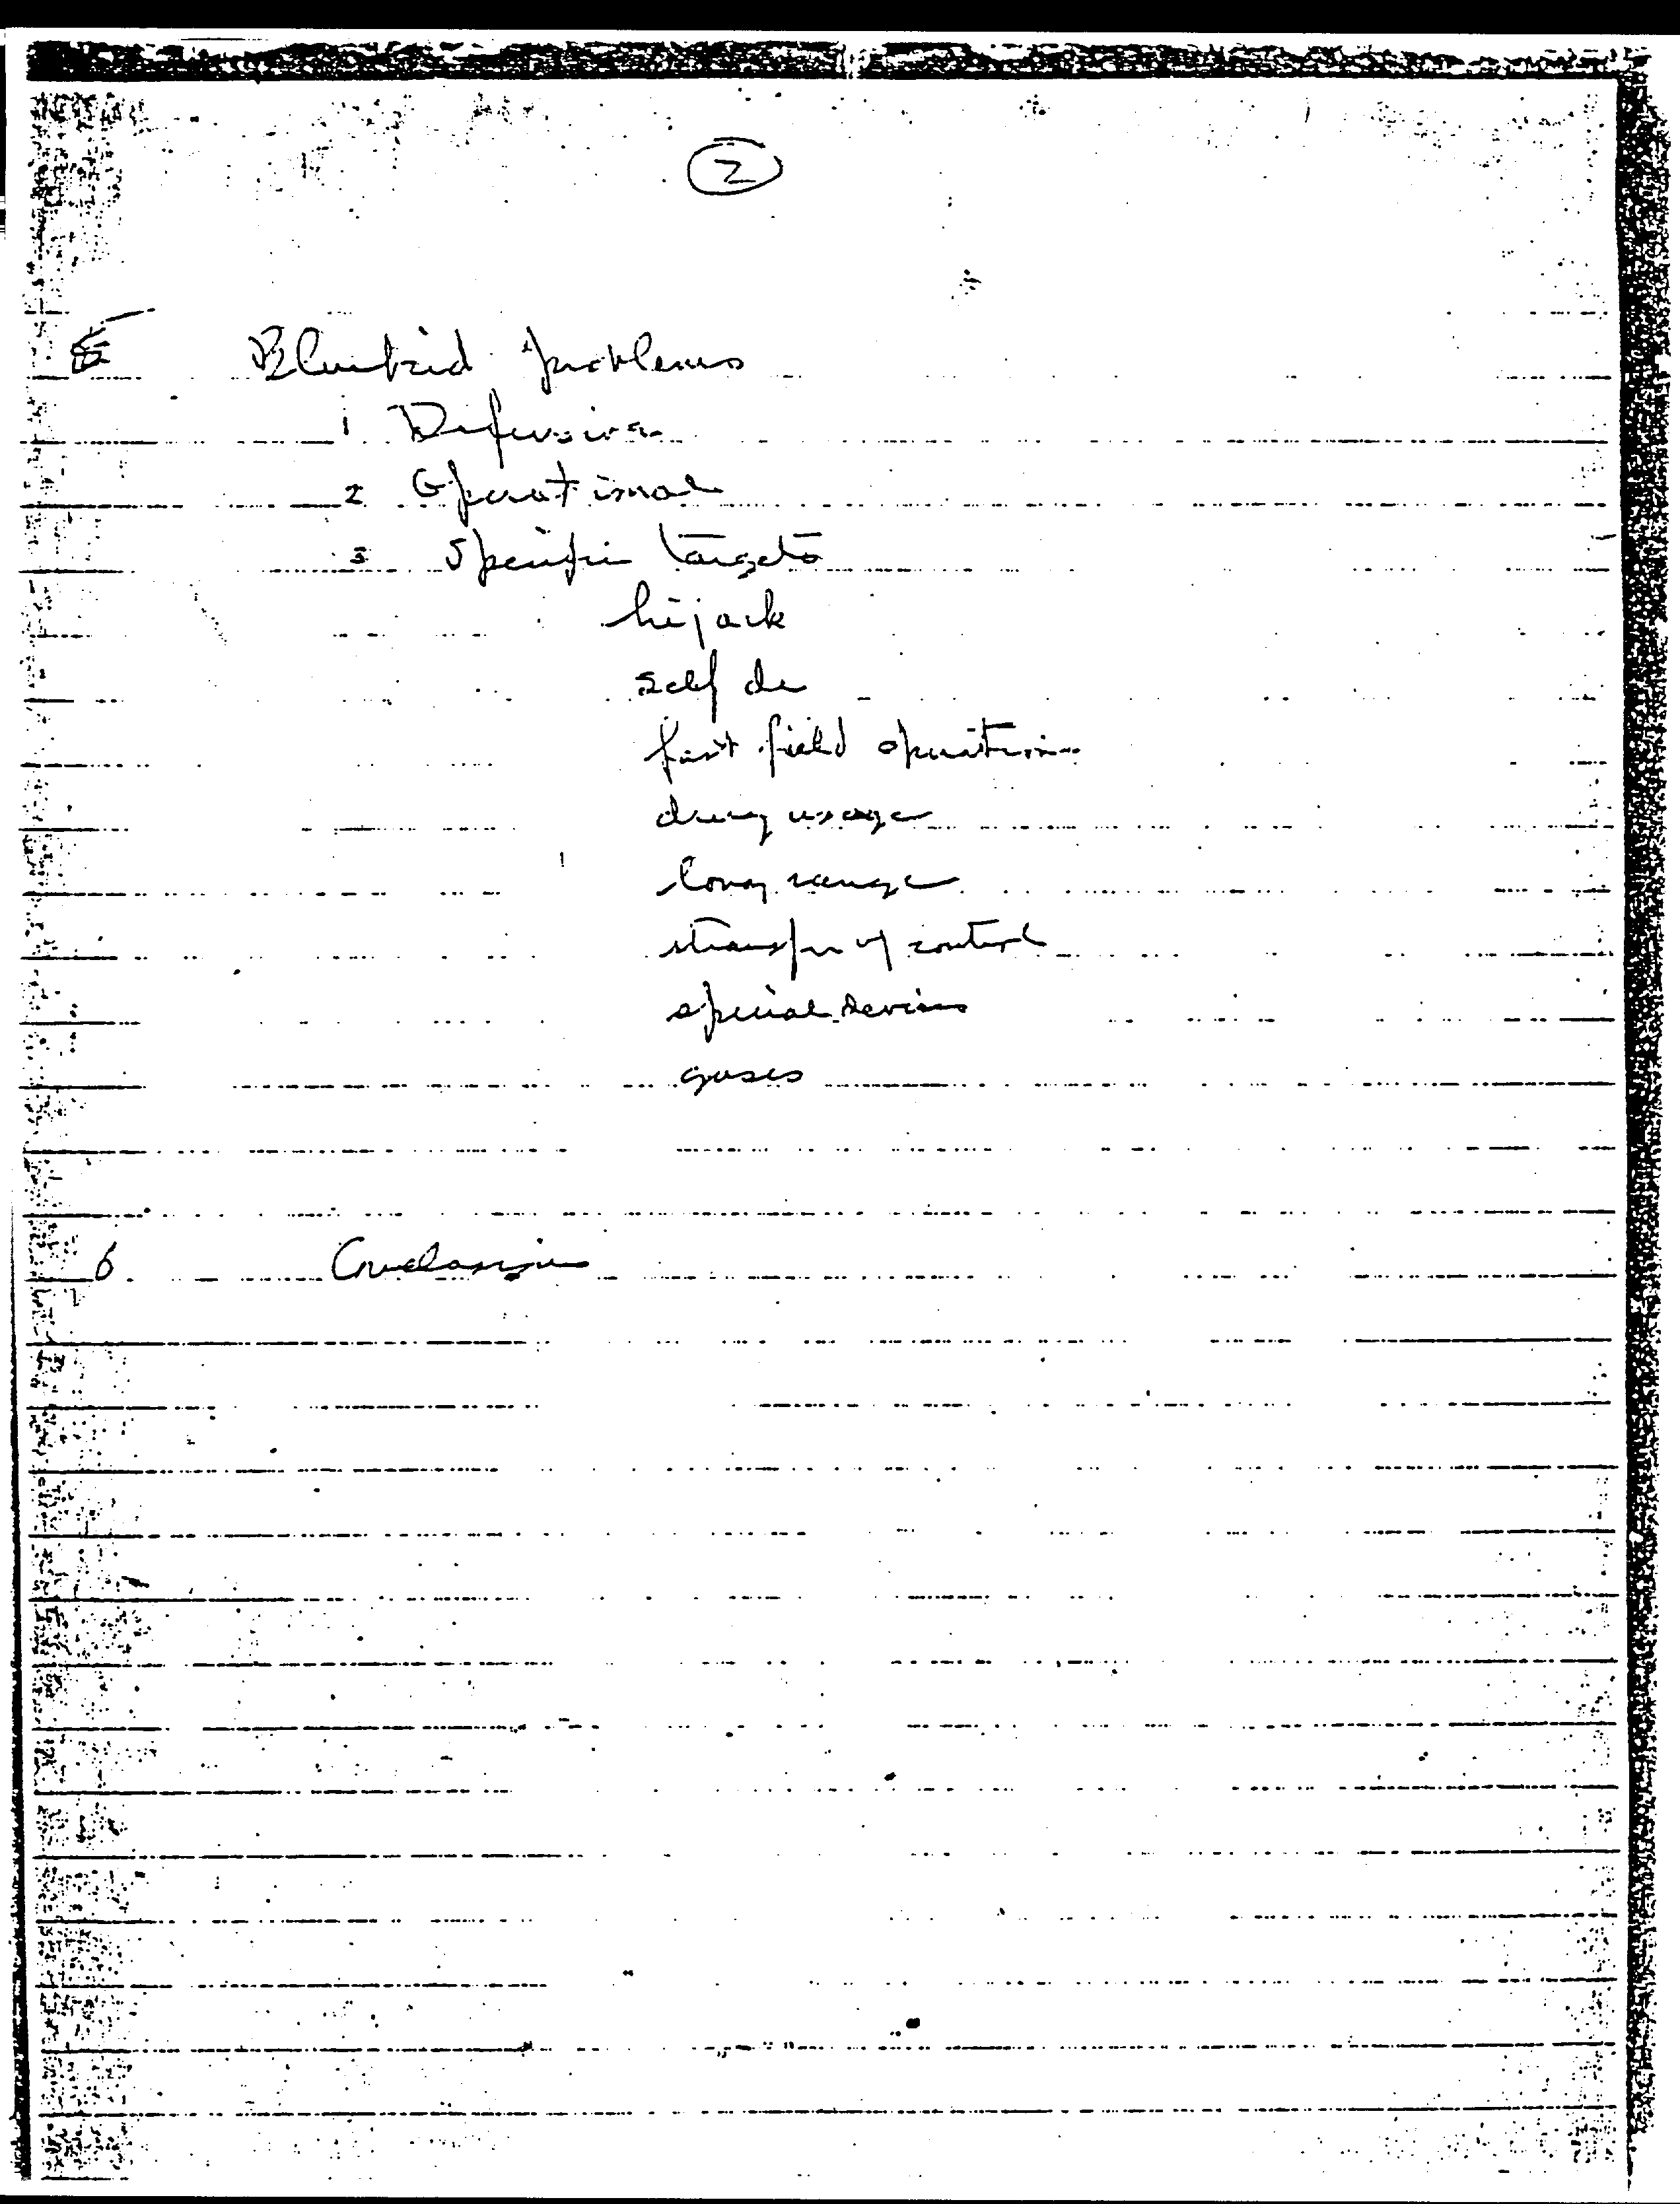 2
5 Bluebird problems
1 Defensive
2 Operational
3 Specific targets
hijack
self de
fast field operation
drug usage
long range
transfer of control
special devices
gases
6 Conclusions